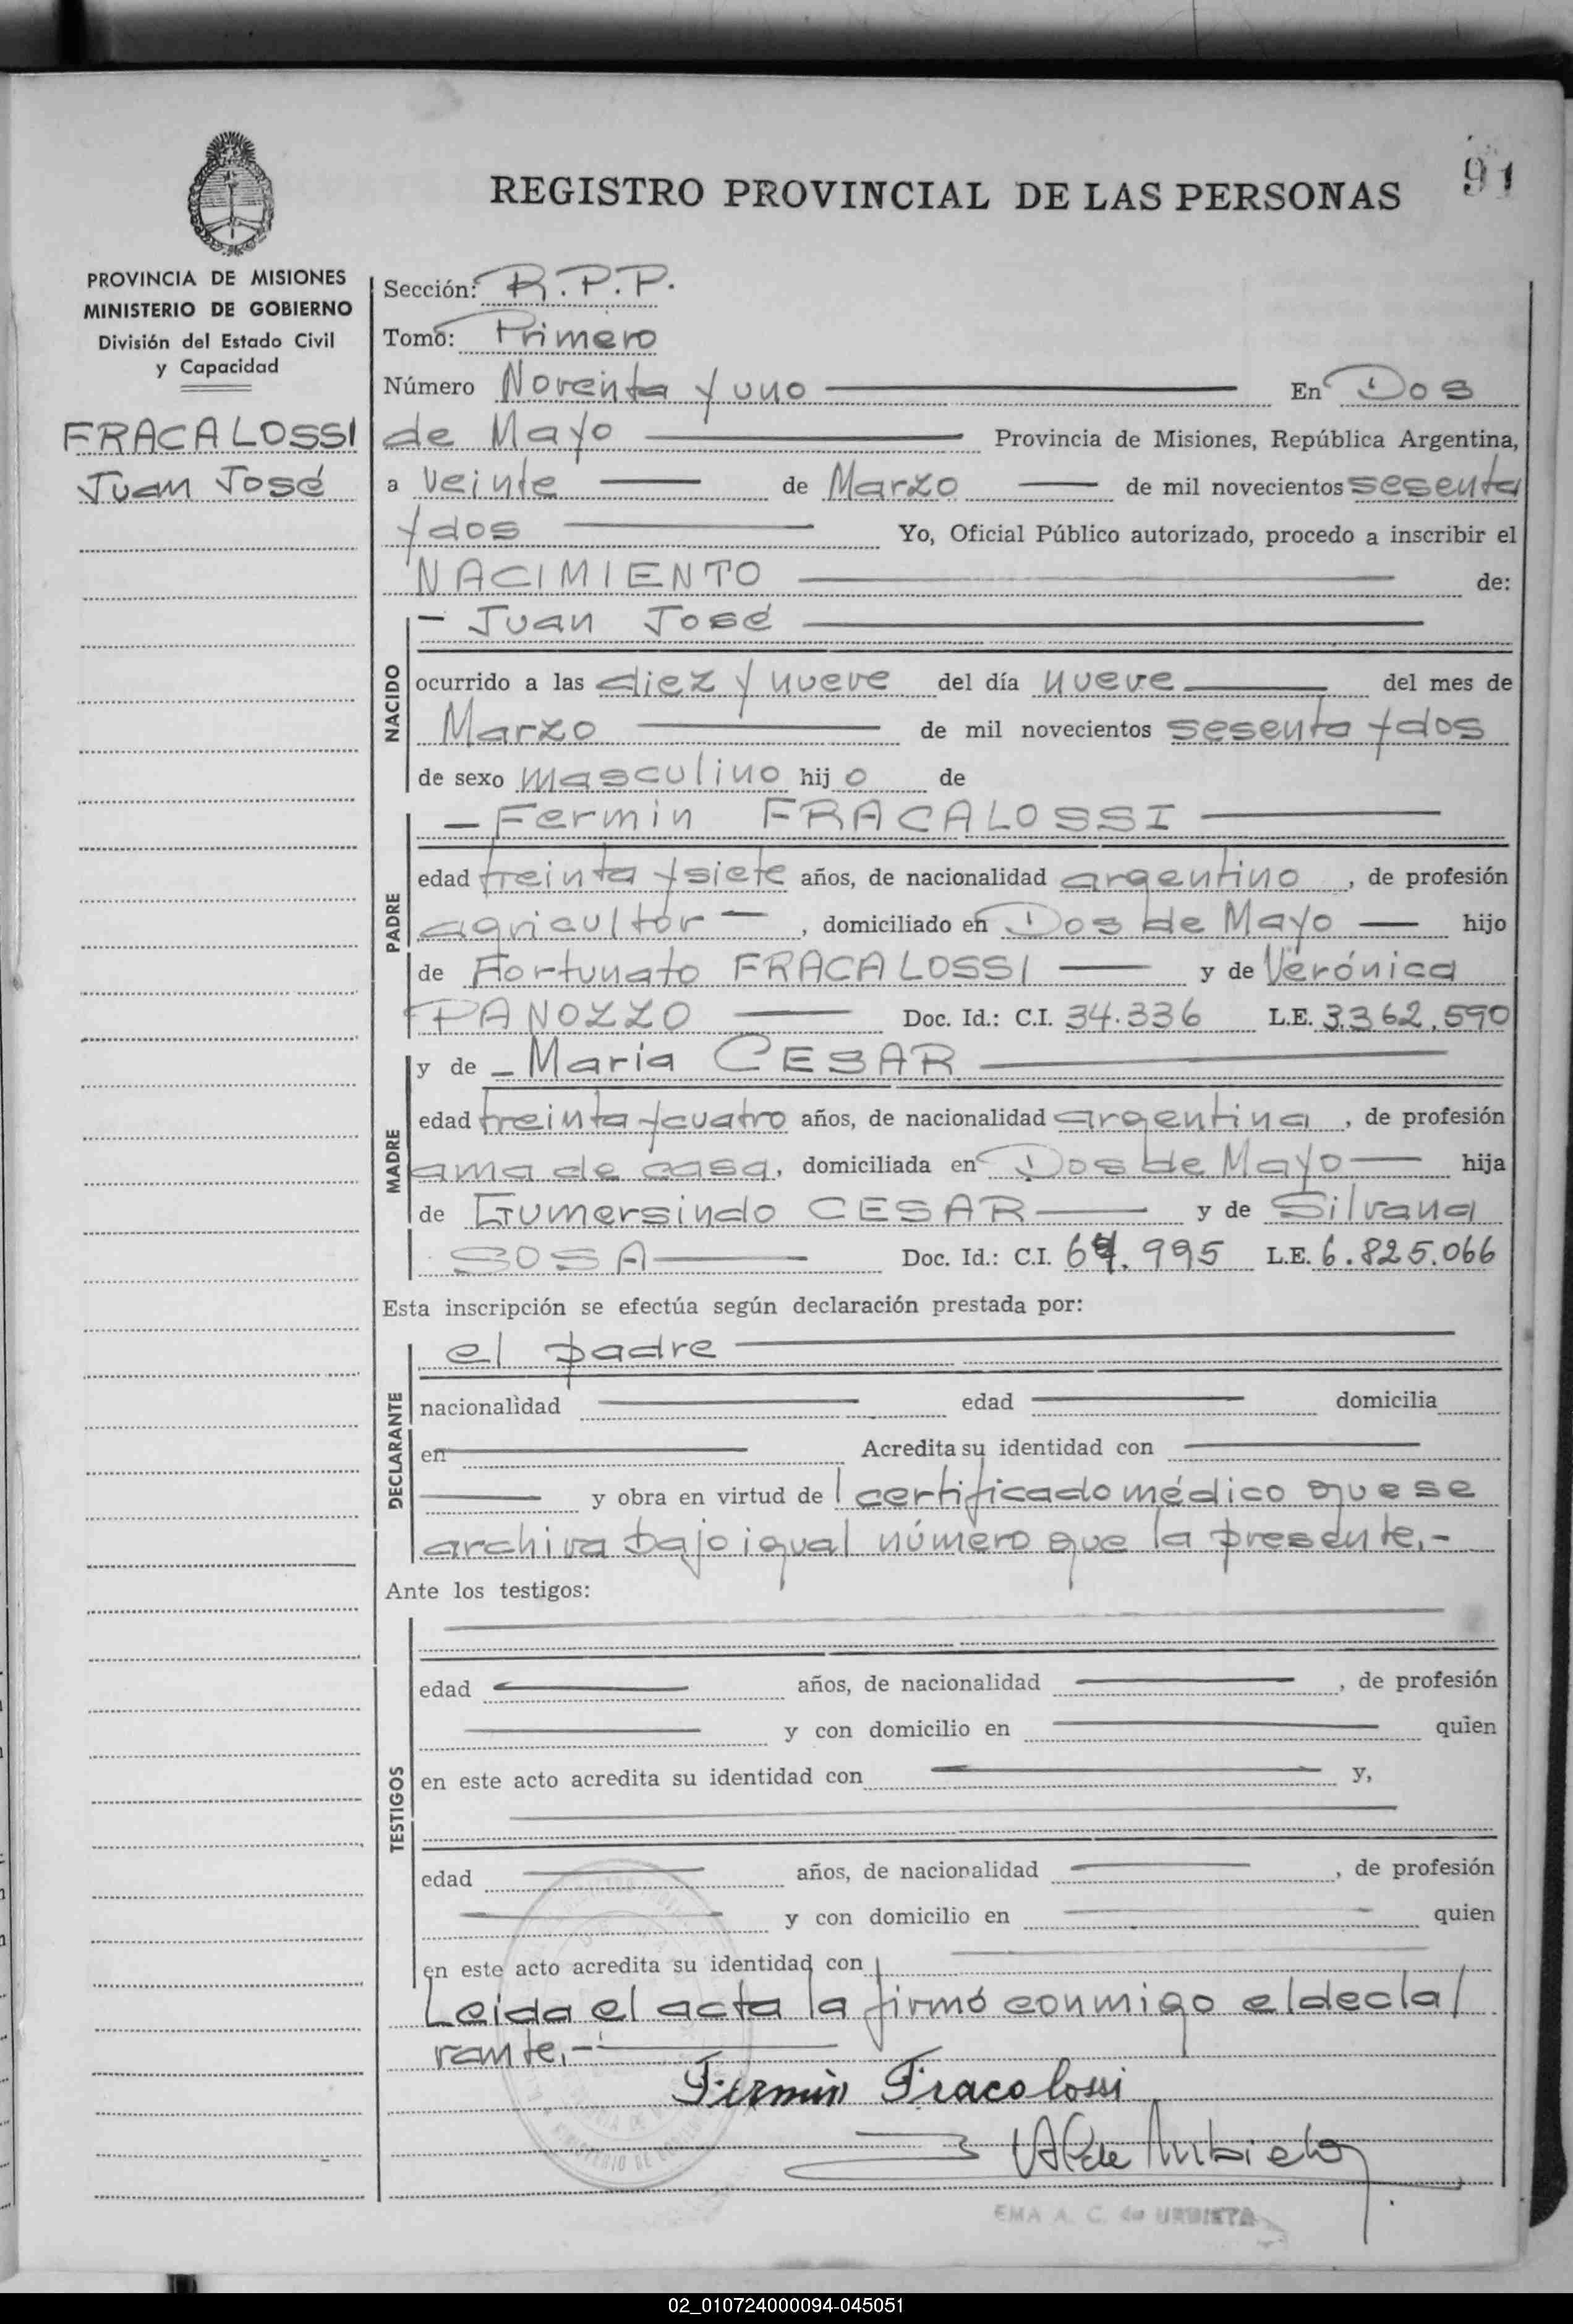 91
REGISTRO PROVINCIAL DE LAS PERSONAS
PROVINCIA DE MISIONES
MINISTERIO DE GOBIERNO
División del Estado Civil
y Capacidad
FRACALOSSI
Juan José
Sección: R.P.P.
Tomo: Primero
Número Noventa y uno En Dos
de Mayo Provincia de Misiones, República Argentina,
a veinte de Marzo de mil novecientos sesenta
y dos Yo, Oficial Público autorizado, procedo a inscribir el
NACIMIENTO de:
NACIDO
- Juan José
ocurrido a las diez y nueve del día nueve del mes de
Marzo de mil novecientos sesenta y dos
de sexo masculino hijo de
PADRE
- Fermin FRACALOSSI
edad treinta y siete años, de nacionalidad argentino, de profesión
agricultor -, domiciliado en Dos de Mayo hijo
de Fortunato FRACALOSSI y de Verónica
PANOZZO Doc. Id.: C.I. 34.336 L.E. 3.362.590
MADRE
y de - Maria CESAR
edad treinta y cuatro años, de nacionalidad argentina, de profesión
ama de casa, domiciliada en Dos de Mayo hija
de Gumersindo CESAR y de Silvana
SOSA Doc. Id.: C.I. .995 L.E. 6.825.066
Esta inscripción se efectúa según declaración prestada por:
DECLARANTE
el padre
nacionalidad edad domicilia
en Acredita su identidad con
y obra en virtud de l certificado médico que se
archiva bajo igual número que la presente.-
Ante los testigos:
TESTIGOS
edad años, de nacionalidad , de profesión
y con domicilio en quien
en este acto acredita su identidad con y,
edad años, de nacionalidad , de profesión
y con domicilio en quien
en este acto acredita su identidad con
Leida el acta la firmó conmigo el decla/
rante.-
Fermin Fracolossi
EMA A. C. de URBIETA
02_010724000094-045051